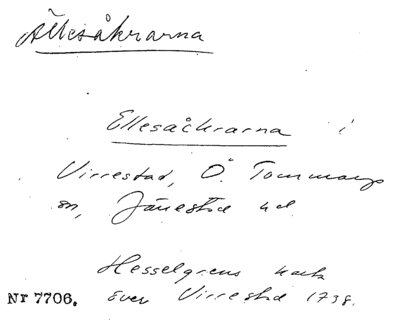 Ällesåkrarna
Ellesåckrarna i
Virrestad, Ö. Tommarps
sn, Järrestad hd.
Hesselgrens karta
över Virrestad 1738.
Nr 7706.